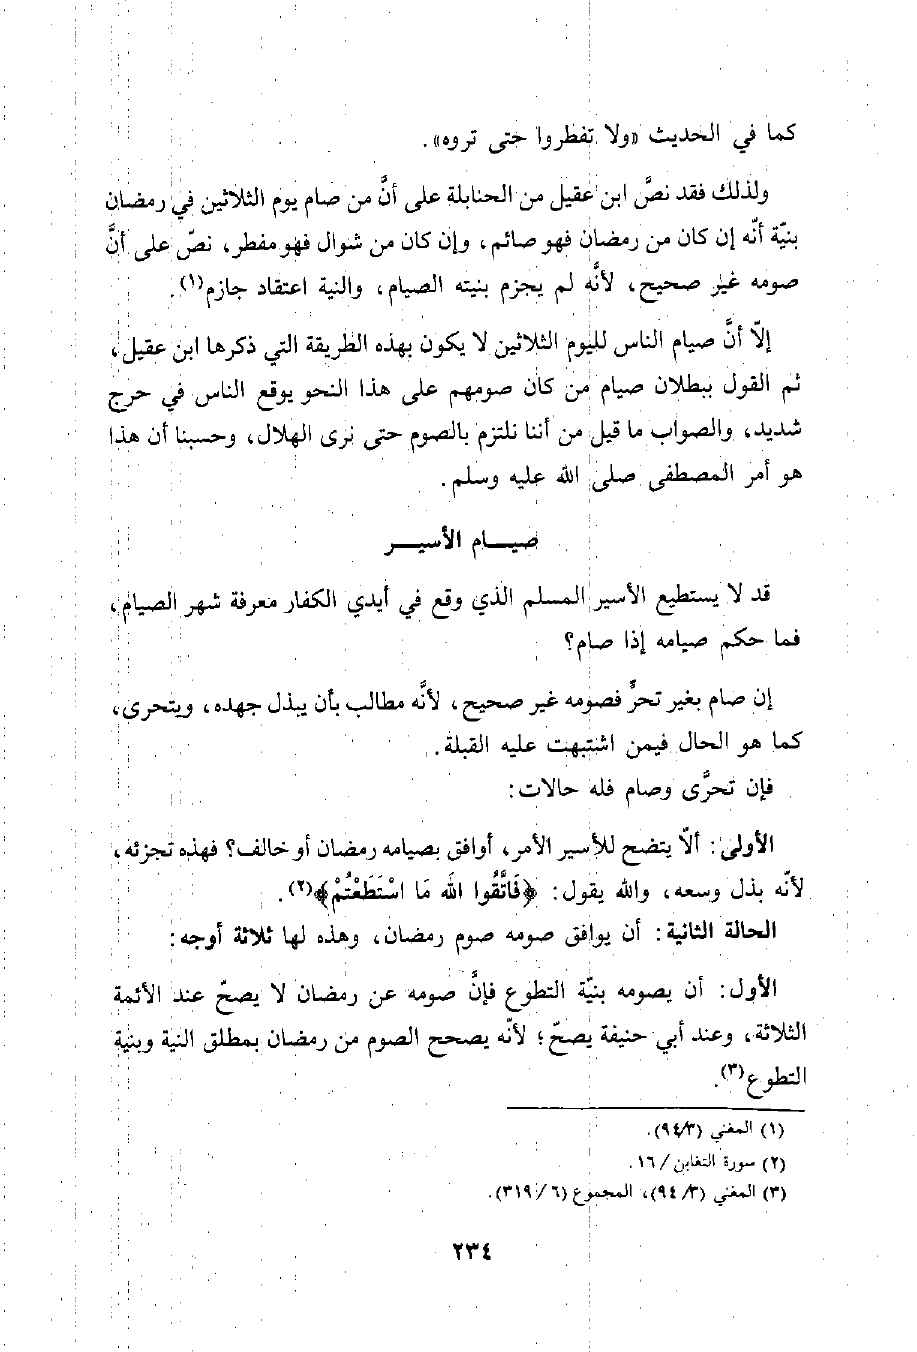 كما في الحديث «ولا تفطروا حتى تروه».
ولذلك فقد نصَّ ابن عقيل من الحنابلة على أنَّ من صام يوم الثلاثين في رمضان
بنيّة أنّه إن كان من رمضان فهو صائم، وإن كان من شوال فهو مفطر، نصّ على أنَّ
صومه غير صحيح، لأنَّه لم يجزم بنيته الصيام، والنية اعتقاد جازم(١).
إلاّ أنَّ صيام الناس لليوم الثلاثين لا يكون بهذه الطريقة التي ذكرها ابن عقيل،
ثم القول ببطلان صيام من كان صومهم على هذا النحو يوقع الناس في حرج
شديد، والصواب ما قيل من أننا نلتزم بالصوم حتى نرى الهلال، وحسبنا أن هذا
هو أمر المصطفى صلى الله عليه وسلم.
صيـــام الأسيـــر
قد لا يستطيع الأسير المسلم الذي وقع في أيدي الكفار معرفة شهر الصيام،
فما حكم صيامه إذا صام؟
إن صام بغير تحرٍّ فصومه غير صحيح، لأنَّه مطالب بأن يبذل جهده، ويتحرى،
كما هو الحال فيمن اشتبهت عليه القبلة.
فإن تحرَّى وصام فله حالات:
الأولى: ألاّ يتضح للأسير الأمر، أوافق بصيامه رمضان أو خالف؟ فهذه تجزئه،
لأنّه بذل وسعه، والله يقول: ﴿فَاتَّقُوا اللَّهَ مَا اسْتَطَعْتُمْ﴾(٢).
الحالة الثانية: أن يوافق صومه صوم رمضان، وهذه لها ثلاثة أوجه:
الأول: أن يصومه بنيّة التطوع فإنَّ صومه عن رمضان لا يصحّ عند الأئمة
الثلاثة، وعند أبي حنيفة يصحّ؛ لأنّه يصحح الصوم من رمضان بمطلق النية وبنية
التطوع(٣).
(١) المغني (٩٤/٣).
(٢) سورة التغابن/ ١٦.
(٣) المغني (٩٤/٣)، المجموع (٣١٩/٦).
٢٣٤